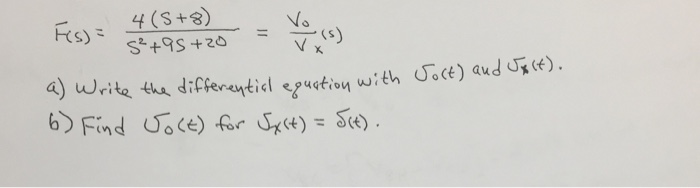 F(s) = 4(S+8) / S²+9S+20 = Vo/Vx (s)
a) Write the differential equation with υo(t) and υx(t).
b) Find υo(t) for υx(t) = δ(t).